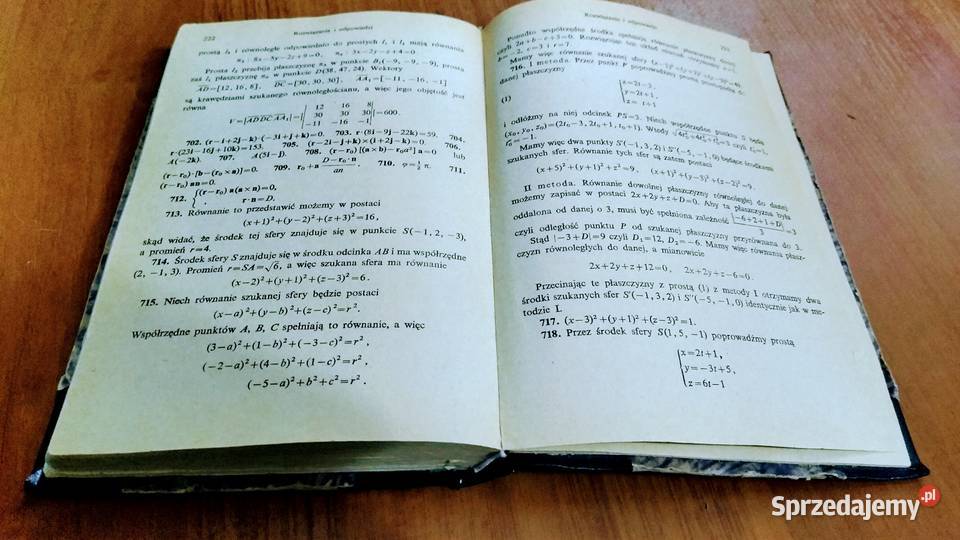 222 Rozwiązania i odpowiedzi
prostą l₃ i równoległe odpowiednio do prostych l₁ i l₂ mają równania
π₃ : 8x−5y−2z+9=0, π₄ : 3x−2y−z+4=0
Prosta l₃ przebija płaszczyznę w punkcie B₁(−9, −9, −9), prosta
zaś l₁ płaszczyznę w punkcie D(38, 47, 24). Wektory
AD=[12, 16, 8], DC=[30, 30, 30], AA₁=[−11, −16, −1]
są krawędziami szukanego równoległościanu, a więc jego objętość jest
równa
V=|AD DC AA₁|=| 12 16 8 |
| 30 30 30 |=600.
| −11 −16 −1 |
702. (r−i+2j−k)·(−3i+j+k)=0. 703. r·(8i−9j−22k)=59. 704.
r·(23i−16j+10k)=153. 705. (r−2i−j+k)×(i+2j−k)=0. 706.
A(−2k). 707. A(5i−j). 708. (r−r₀)[(a×b)−r₀a²]=0 lub
(r−r₀)·[b−(r₀×a)]=0. 709. r₀+a (D−r₀·n)/an. 710. φ=⅓π. 711.
(r−r₀)an=0.
712. {(r−r₀)a(a×n)=0,
r·n=D.
713. Równanie to przedstawić możemy w postaci
(x+1)²+(y−2)²+(z+3)²=16,
skąd widać, że środek tej sfery znajduje się w punkcie S(−1, 2, −3),
a promień r=4.
714. Środek sfery S znajduje się w środku odcinka AB i ma współrzędne
(2, −1, 3). Promień r=SA=√6, a więc szukana sfera ma równanie
(x−2)²+(y+1)²+(z−3)²=6.
715. Niech równanie szukanej sfery będzie postaci
(x−a)²+(y−b)²+(z−c)²=r².
Współrzędne punktów A, B, C spełniają to równanie, a więc
(3−a)²+(1−b)²+(−3−c)²=r²,
(−2−a)²+(4−b)²+(1−c)²=r²,
(−5−a)²+b²+c²=r².
Rozwiązania i odpowiedzi
Ponadto współrzędne środka spełniają równanie płaszczyzny danej
czyli 2a+b−c+3=0. Rozwiązując ten układ równań otrzymamy
b=−2, c=3 i r=7.
Mamy więc równanie szukanej sfery
716. I metoda. Przez punkt P poprowadźmy prostą prostopadłą do
danej płaszczyzny
(1) {x=2t−3,
y=2t+1,
z= t+1
i odłóżmy na niej odcinek PS=3. Niech współrzędne punktu S będą
(x₀, y₀, z₀)=(2t₀−3, 2t₀+1, t₀+1). Wtedy √4t₀²+4t₀²+t₀²=3 czyli t₀=1,
t₀′=−1.
Mamy więc dwa punkty S′(−1, 3, 2) i S″(−5, −1, 0) będące środkami
szukanych sfer. Równanie tych sfer są zatem postaci
(x+5)²+(y+1)²+z²=9, (x+1)²+(y−3)²+(z−2)²=9.
II metoda. Równanie dowolnej płaszczyzny równoległej do danej
możemy zapisać w postaci 2x+2y+z+D=0. Aby ta płaszczyzna była
oddalona od danej o 3, musi być spełniona zależność |−6+2+1+D|/3=3
czyli odległość punktu P od szukanej płaszczyzny przyrównana do 3.
Stąd |−3+D|=9 czyli D₁=12, D₂=−6. Mamy więc równania płasz-
czyzn równoległych do danej, a mianowicie
2x+2y+z+12=0, 2x+2y+z−6=0.
Przecinając te płaszczyzny z prostą (1) z metody I otrzymamy dwa
środki szukanych sfer S′(−1, 3, 2) i S″(−5, −1, 0) identycznie jak w me-
todzie I.
717. (x−3)²+(y+1)²+(z−3)²=1.
718. Przez środek sfery S(1, 5, −1) poprowadźmy prostą
{x=2t+1,
y=−3t+5,
z=6t−1
Sprzedajemy.pl